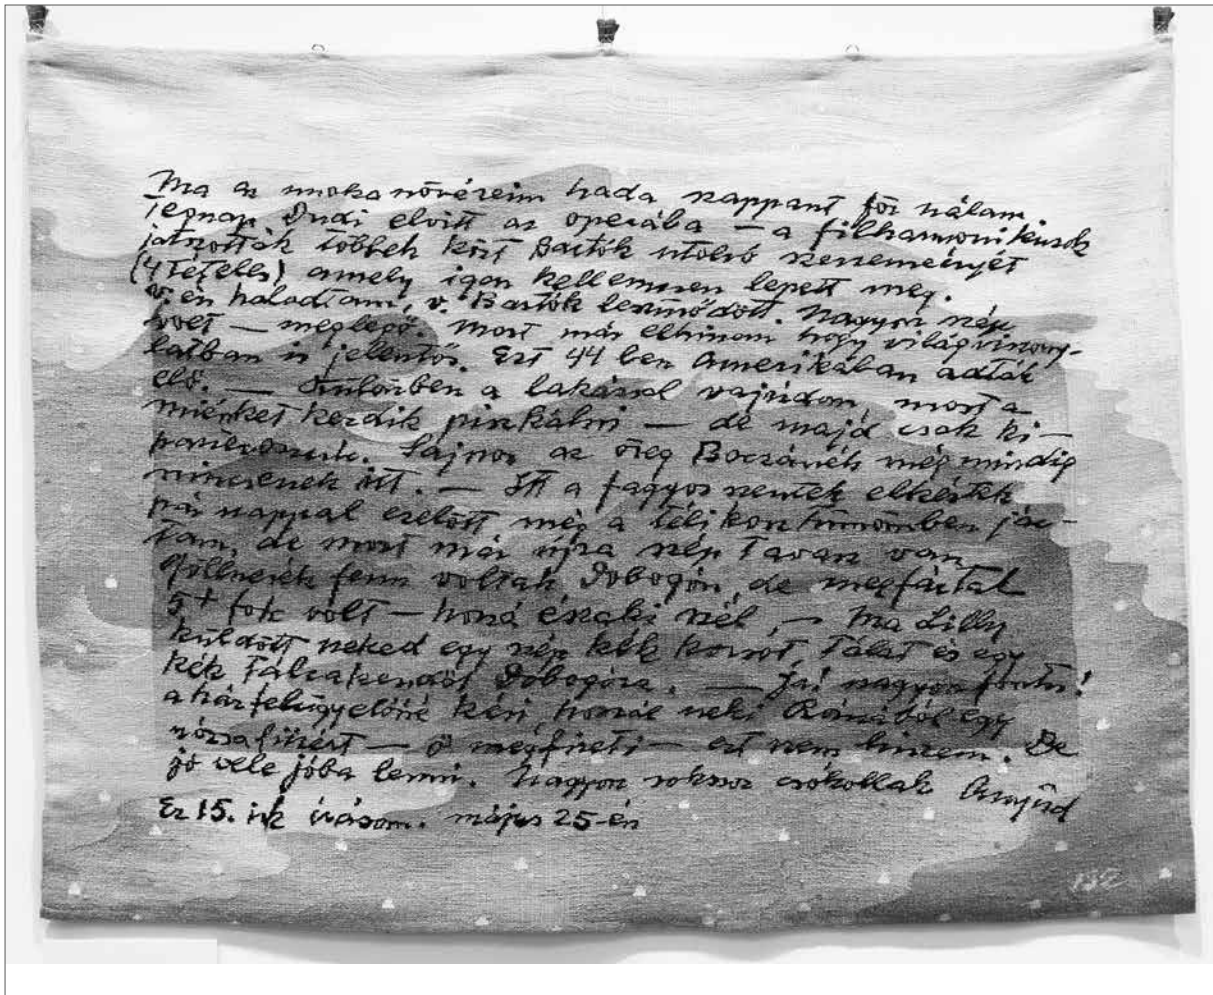 Ma az unokanővéreim hada nappant för nálam.
Tegnap Dudi elvitt az operába — a filharmonikusok
játszották többek közt Bartók utolsó szerzeményét
(4 tételes) amely igen kellemesen lepett meg.
V. én haladtam, v. Bartók lexmódott. Nagyon szép
volt — meglepő. Most már elhiszem hogy világviszony-
latban is jelentős. Ezt 44 ben Amerikában adták
elő. — Különben a lakással vajúdom, most a
miénket kezdik piszkálni — de majd csak ki-
Sajnos az öreg Boczánék még mindig
nincsenek itt. — Itt a fagyos szentek elkéstek
pár nappal ezelőtt még a téli kosztümömben jár-
tam, de most már újra szép Tavasz van
Göllnerék fenn voltak Dobogón, de megfáztak
5+ fok volt — hozzá északi szél, — Ma Lilly
küldött neked egy szép kék korsót, Tálat és egy
kék Tálcakendőt Dobogóra. — Já! nagyon fontos!
a házfelügyelőné kéri, hozzál neki Rómából egy
rózsafüzért — ő megfizeti — ezt nem hiszem. De
jó vele jóba lenni. Nagyon sokszor csókollak Anyud
Ez 15. ik írásom. május 25-én
132